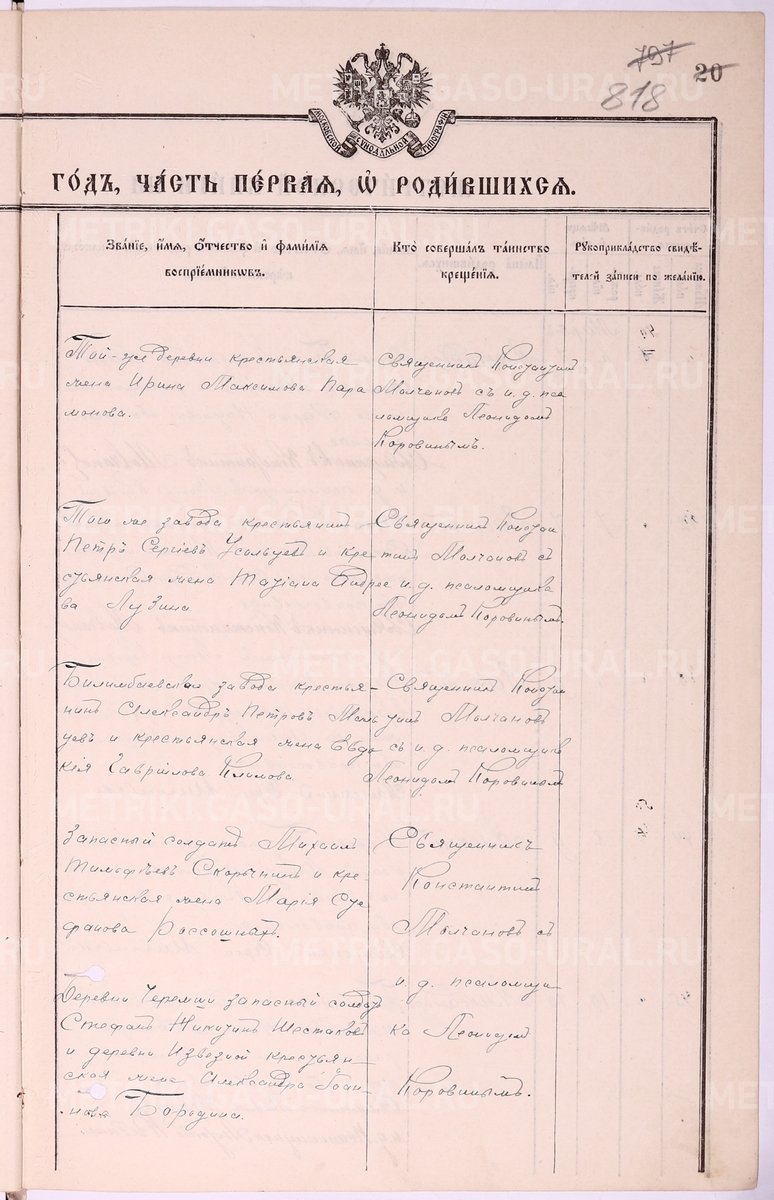 797
20
818
МОСКОВСКОЙ СѴНОДАЛЬНОЙ ТИПОГРАФІИ
ГО́ДЪ, ЧА́СТЬ ПЕ́РВАЯ, Ѽ РОДИ́ВШИХСЯ.
Зва́нїе, и́мя, о́тчество и фами́лїя
воспрїе́мниковъ.
Кто̀ соверша́лъ та́инство
креще́нїя.
Рꙋкоприкла́дство свидѣ́-
телей за́писи по жела́нїю.
Той-же деревни крестьянская
жена Ирина Максимова Пара
монова.
Священникъ Константинъ
Молчановъ съ и. д. пса
ломщика Леонидомъ
Коровинымъ.
Того же завода крестьянинъ
Петръ Сергіевъ Усольцевъ и кре
стьянская жена Татіана Андрее
ва Лузина
Священникъ Констан
тинъ Молчановъ съ
и. д. псаломщика
Леонидомъ Коровинымъ.
Билимбаевскаго завода крестья-
нинъ Александръ Петровъ Маль
цевъ и крестьянская жена Евдо
кія Гавріилова Климова
Священникъ Констан
тинъ Молчановъ
съ и. д. псаломщика
Леонидомъ Коровинымъ
Запасный солдатъ Михаилъ
Тимофѣевъ Скорынинъ и кре
стьянская жена Марія Сте
фанова Россошныхъ.
Священникъ
Константинъ
Молчановъ съ
и. д. псаломщи
ка Леонидомъ
Коровинымъ.
Деревни Черемши запасный солдатъ
Стефанъ Никитинъ Шестаковъ
и деревни Извезной крестьян
ская жена Александра Іоан-
нова Бородина.
METRIKI.GASO-URAL.RU